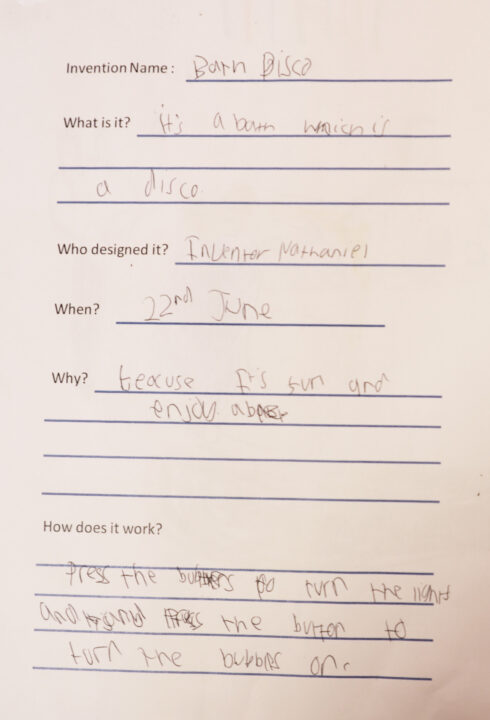 Invention Name : Barh Disco
What is it? it's a bath which is
a disco.
Who designed it? Inventer Nathaniel
When? 22nd June
Why? becuse It's fun and
enjoy
How does it work?
Press the to turn the light
and the button to
turn the bubbls on.